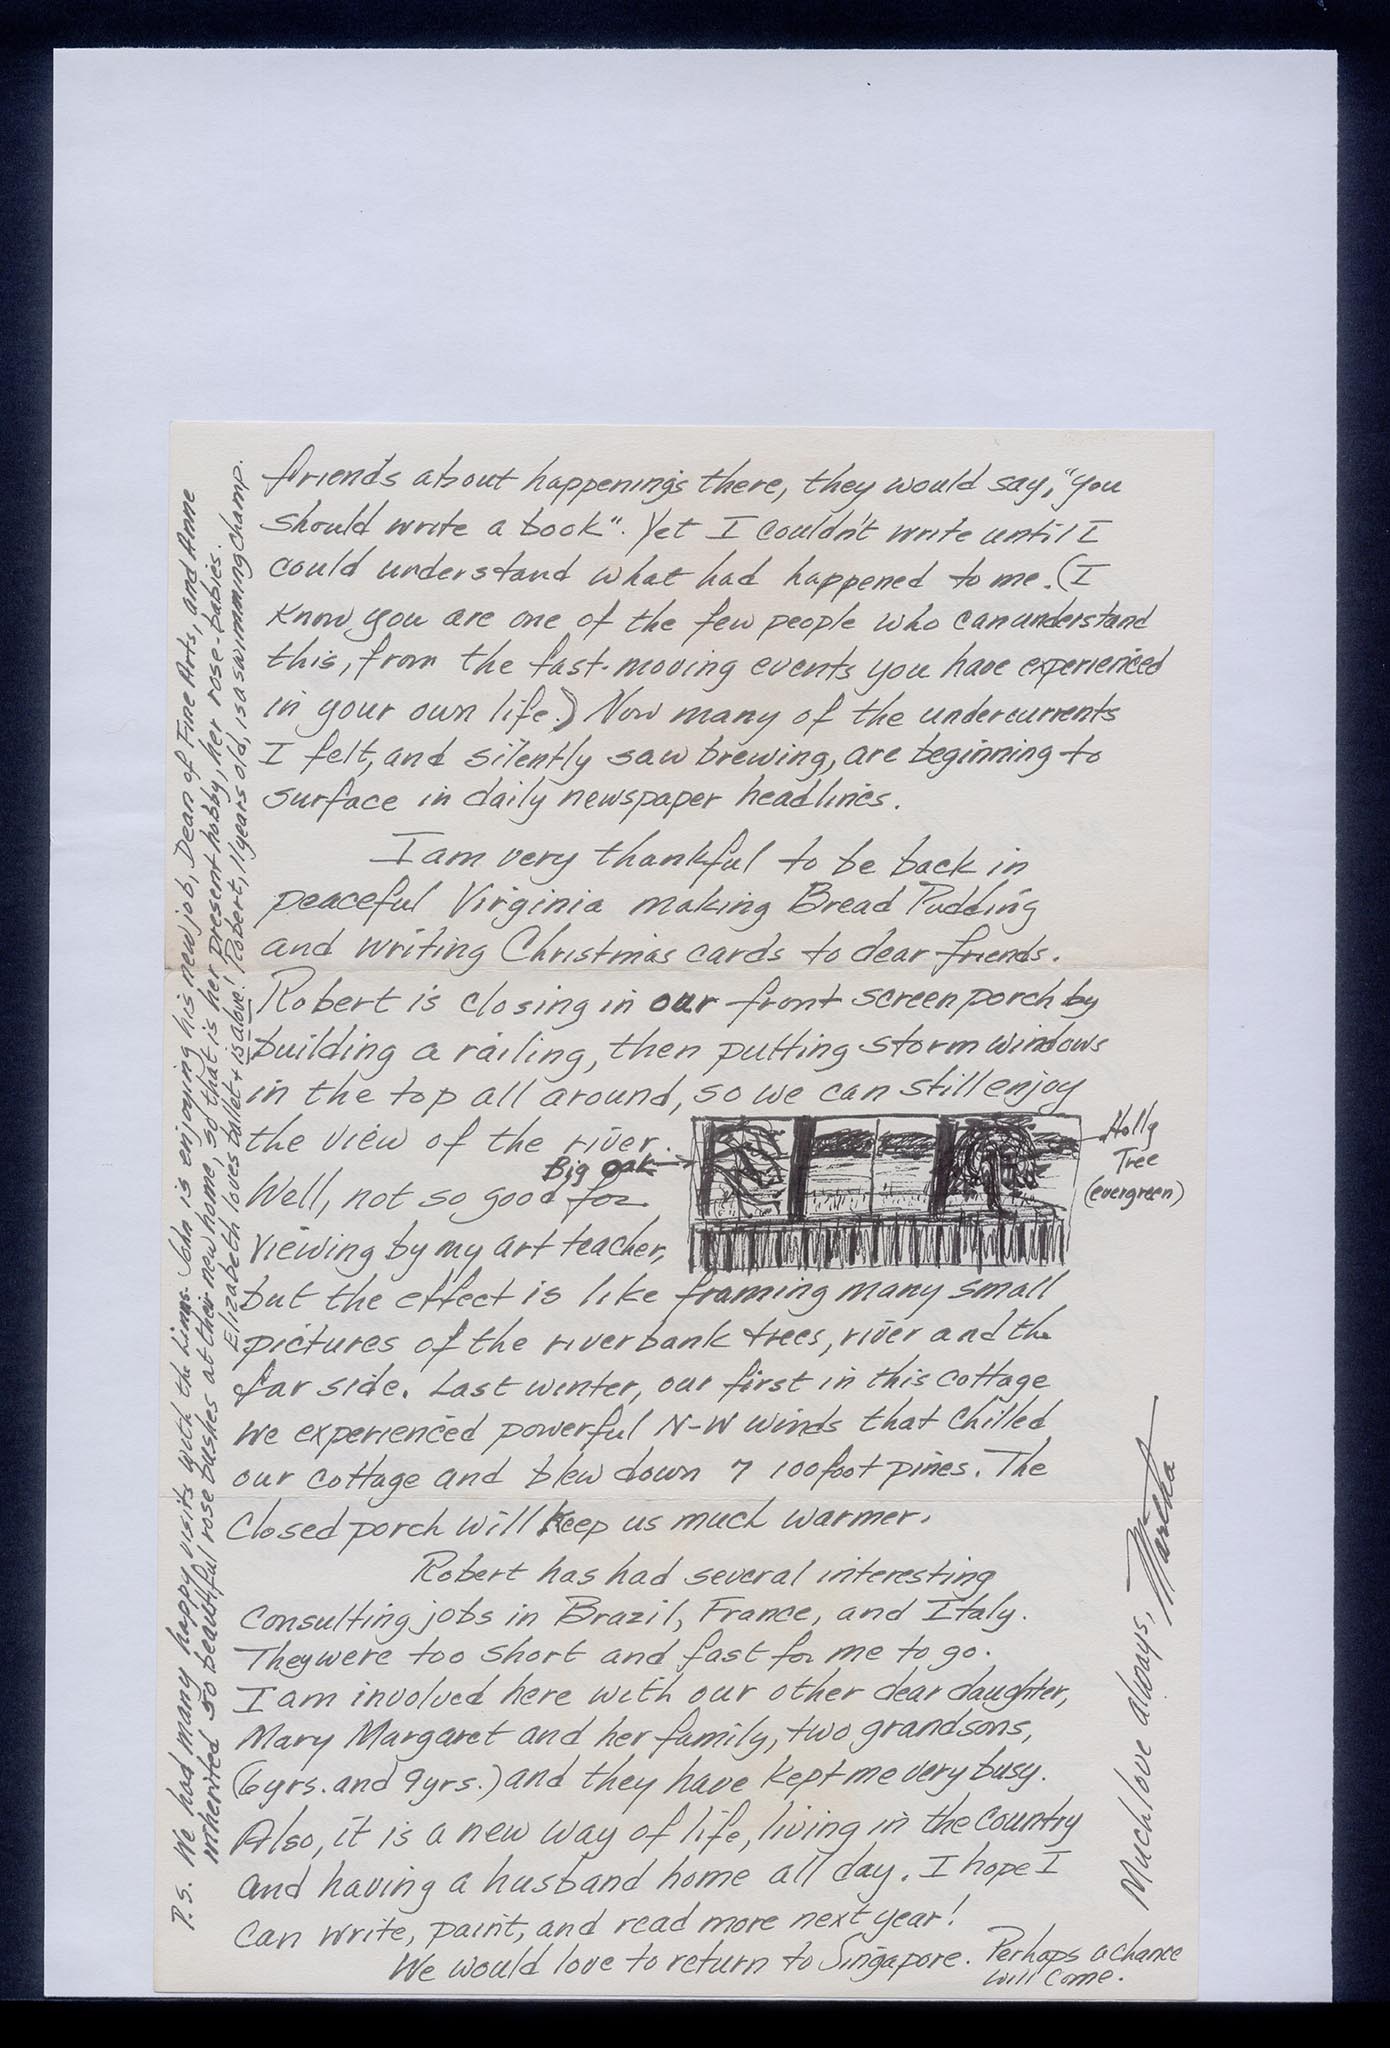 friends about happenings there, they would say, "you
should write a book". Yet I couldn't write until I
could understand what had happened to me. (I
know you are one of the few people who can understand
this, from the fast-moving events you have experienced
in your own life.) Now many of the undercurrents
I felt, and silently saw brewing, are beginning to
surface in daily newspaper headlines.
I am very thankful to be back in
peaceful Virginia making Bread Pudding
and writing Christmas cards to dear friends.
Robert is closing in our front screen porch by
building a railing, then putting storm windows
in the top all around, so we can still enjoy
the view of the river.
Big oak
Holly
Tree
(evergreen)
Well, not so good for
viewing by my art teacher,
but the effect is like framing many small
pictures of the riverbank trees, river and the
far side. Last winter, our first in this cottage
we experienced powerful N-W winds that chilled
our cottage and blew down 7 100 foot pines. The
closed porch will keep us much warmer.
Robert has had several interesting
consulting jobs in Brazil, France, and Italy.
They were too short and fast for me to go.
I am involved here with our other dear daughter,
Mary Margaret and her family, two grandsons,
(6 yrs. and 9 yrs.) and they have kept me very busy.
Also, it is a new way of life, living in the country
and having a husband home all day. I hope I
can write, paint, and read more next year!
We would love to return to Singapore. Perhaps a chance
will come.
Much love always, Martha
P.S. We had many happy visits with the Lims. John is enjoying his new job, Dean of Fine Arts, and Anne
inherited 50 beautiful rose bushes at their new home, so that is her present hobby, her rose-babies.
Elizabeth loves ballet + is above! Robert, 11 years old, is a swimming champ.